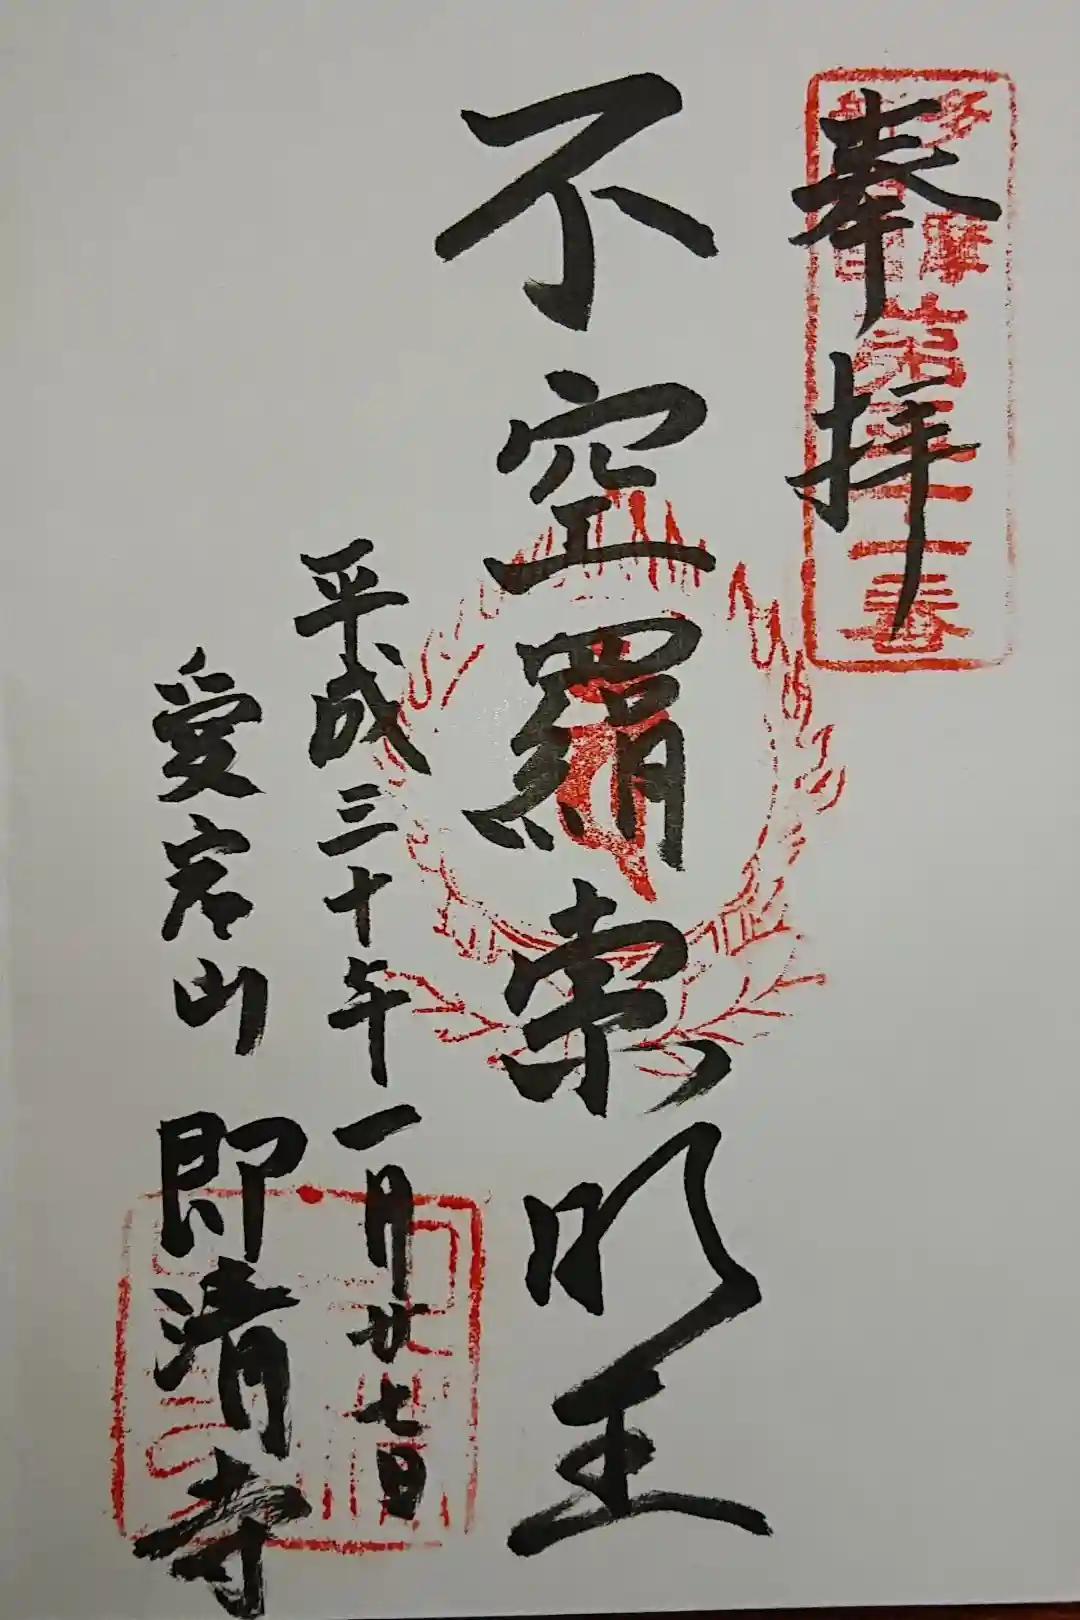 奉拝
多摩
第三十三番
不空羂索明王
平成三十年一月廿七日
愛宕山
即清寺